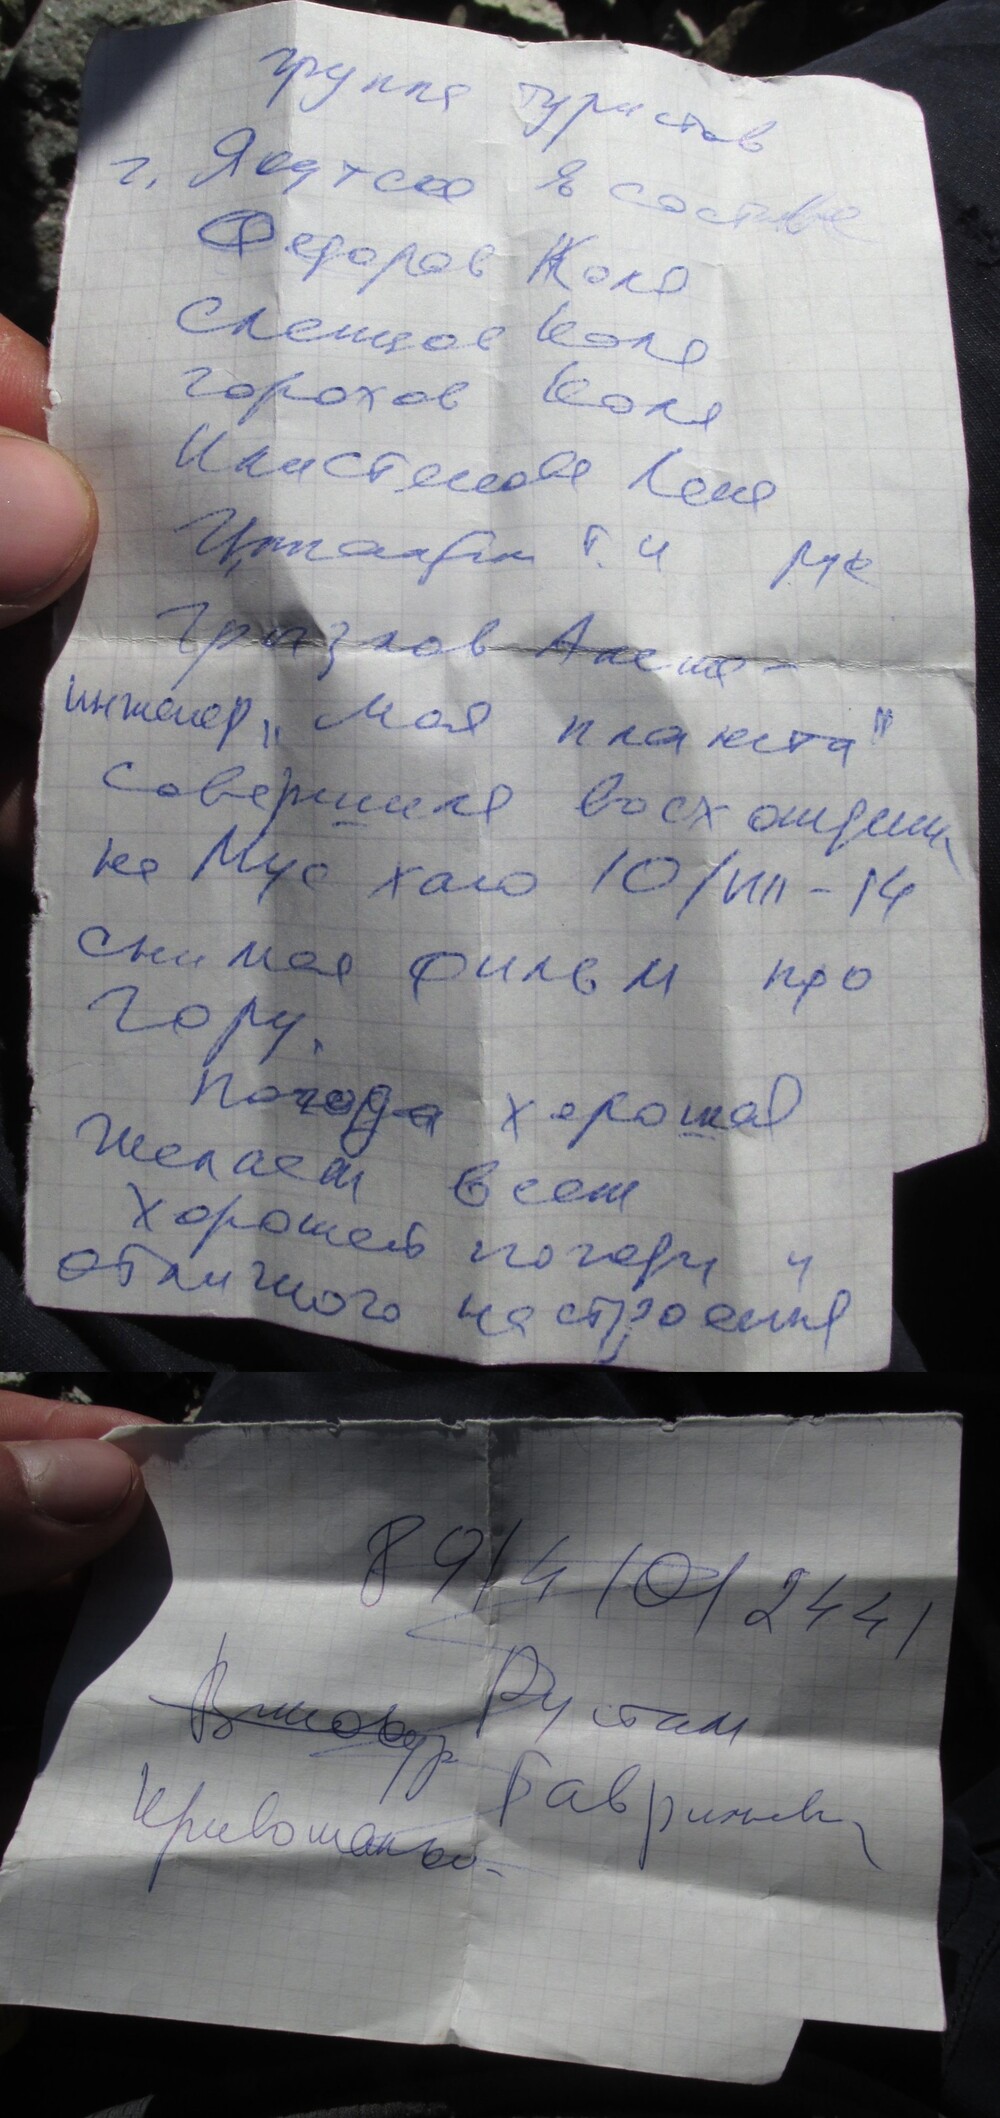 группа туристов
г. Якутска в составе
Федоров Коля
Слепцов Коля
Горохов Коля
Лена
Г. И рук
Грязнов Алеша -
инженер „Моя планета"
совершила восхождение
на Мус хая 10/VIII-14
снимая фильм про
гору.
Погода хорошая
Желаем всем
хорошей погоды и
отличного настроения
8914 101 2441
Рустам